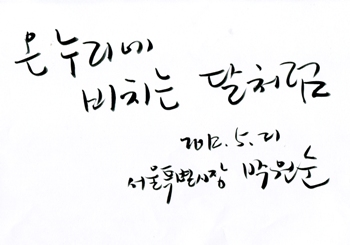 온 누리에
비치는 달처럼
2012. 5. 21
서울특별시장 박원순